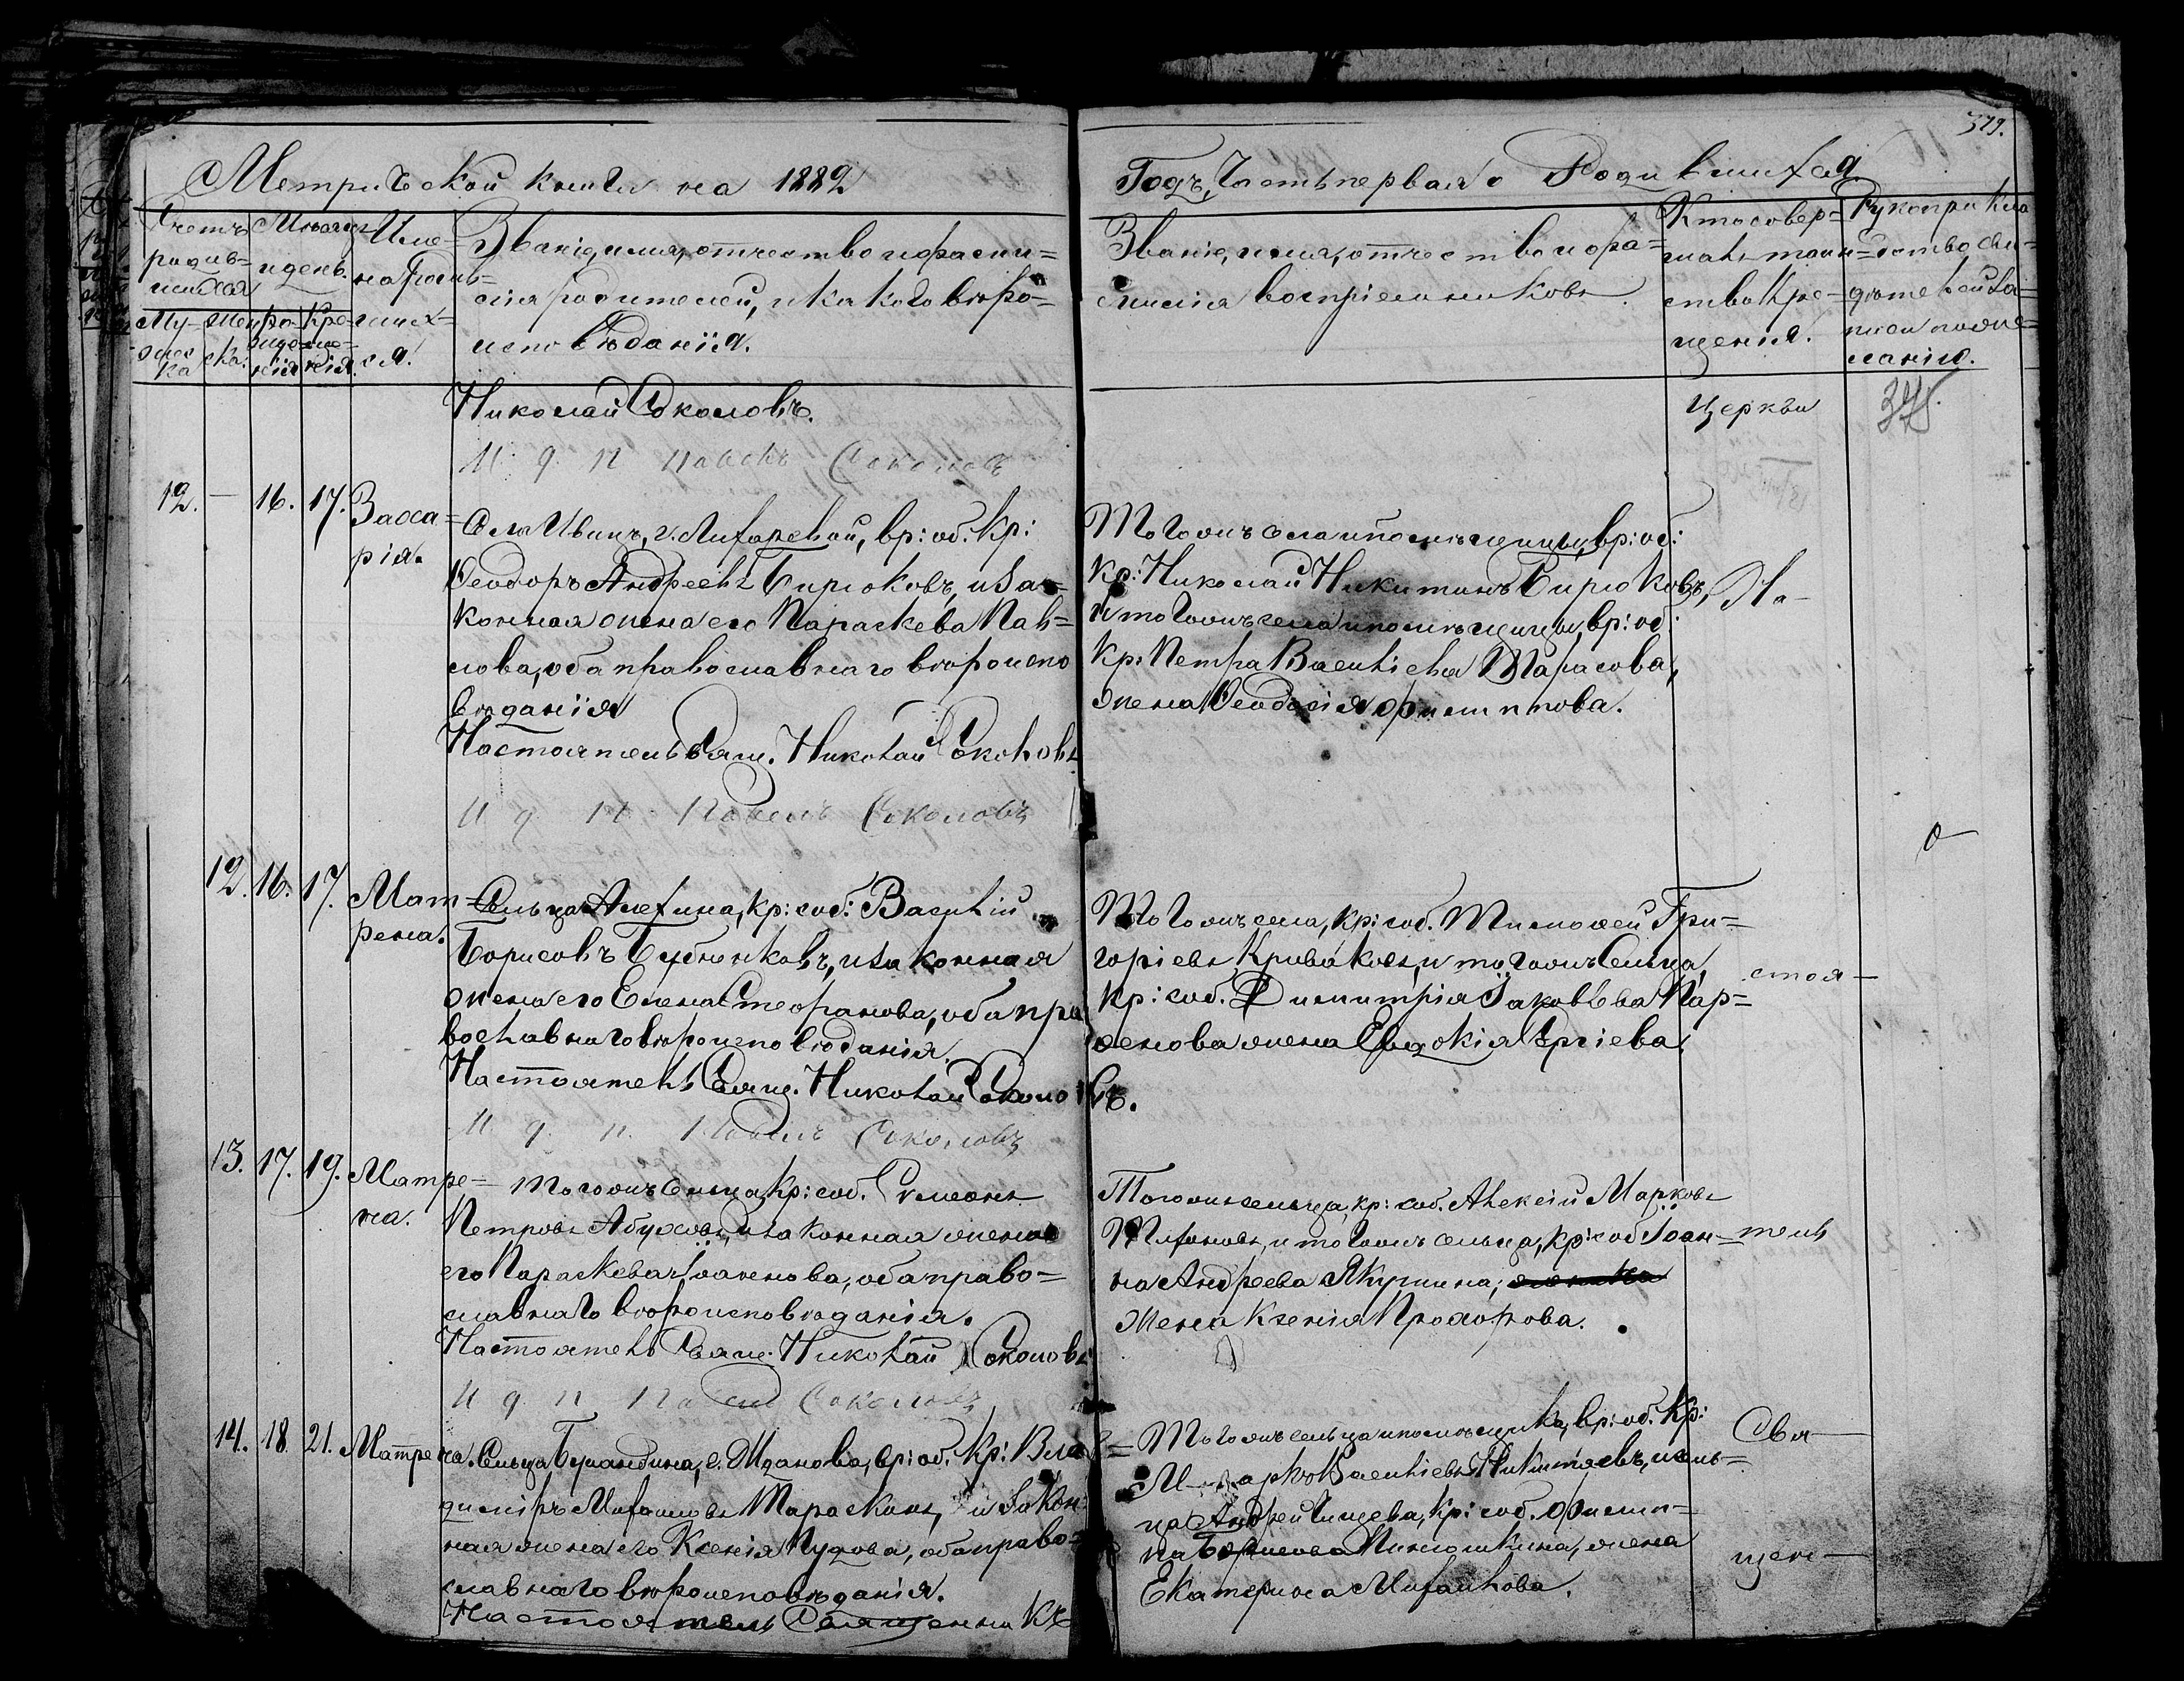 379.
Метрической книги на 1882
Годъ, Часть первая о Родившихся
Счетъ родив-шихся
Муж-еска
Жен-ска:
Месяцъ и день.
Рож-дения
Кре-щения
Име-на Родив-шихся.
Званіе, имя, отчество и фами=
лія родителей, и какого вѣро=
исповѣданія.
Званіе, имя, отчество и фа=
милія воспріемниковъ.
Кто совер=
шалъ таин=
ство Кре=
щенія.
Рукоприкла
дство сви=
дѣтелей за=
писи по же=
ланію.
Николай Соколовъ.
И д п Павелъ Соколовъ
Церкви
375.
12. — 16. 17. Заха=
рія.
Села Ивицъ, г. Лихаревой, вр: об: кр:
Ѳеодоръ Андреевъ Бирюковъ, и за=
конная жена его Параскева Пав=
лова, оба православнаго вѣроиспо
вѣданія
Настоятель Свящ. Николай Соколовъ
И д п Павелъ Соколовъ
Тогожъ села и помѣщицы, вр: об:
кр: Николай Никитинъ Бирюковъ,
и тогожъ села и помѣщицы, вр: об:
кр: Петра Васильева Тарасова,
жена Ѳеодосія Филиппова.
На-
12. 16. 17. Мат=
рена.
Сельца Алехина, кр: соб: Василій
Борисовъ Бубненковъ, и законная
жена его Елена Стефанова, оба пра
вославнаго вѣроисповѣданія.
Настоятель Свящ. Николай Соколо
въ.
И д п. Павелъ Соколовъ
Тогожъ села, кр: соб. Тимофей Гри=
горіевъ Кривакоевъ, и тогожъ Сельца,
кр: соб. Димитрія Іаковлева Пар=
фенова жена Евдокія Сергіева.
стоя-
13. 17. 19. Матре=
на.
Тогожъ Сельца, кр: соб. Симеонъ
Петровъ Абуховъ, и законная жена
его Параскева Іоаннова, оба право=
славнаго вѣроисповѣданія.
Настоятель Свящ. Николай Соколовъ
И д п Павелъ Соколовъ
Тогожъ сельца, кр: соб. Алексій Марковъ
Тихоновъ, и тогожъ сельца, кр: соб: Іоан=
на Андреева Якушина,
жена Ксенія Прохорова.
тель
14. 18. 21. Матрена.
Сельца Бурандина, г. Жданова, вр: об. кр: Вла=
диміръ Михайловъ Тараскинъ, и закон
ная жена его Ксенія Пудова, оба право=
славнаго вѣроисповѣданія.
Настоятель Священникъ
Тогожъ сельца и помѣщика, вр: об. кр:
Васильевъ Никитаевъ, и сель=
ца кр: соб. Филип=
па Борисова жена
Екатерина Михайлова.
Свя-
щен-